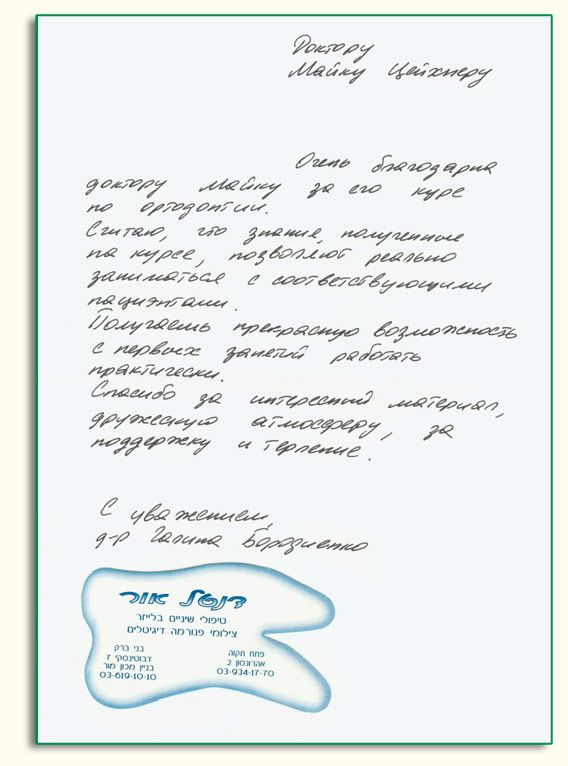 Доктору
Майку Цейхнеру
Очень благодарна
доктору Майку за его курс
по ортодонтии.
Считаю, что знания, полученные
на курсе, позволяют реально
заниматься с соответствующими
пациэнтами.
Получаешь прекрасную возможность
с первых занятий работать
практически.
Спасибо за интересный материал,
дружескую атмосферу, за
поддержку и терпение.
С уважением,
д-р Галина Бородиенко
דנטל אור
טיפולי שיניים בלייזר
צילומי פנורמה דיגיטלים
בני ברק
ז'בוטינסקי 7
בניין מכון מור
03-619-10-10
פתח תקוה
אהרונסון 2
03-934-17-70